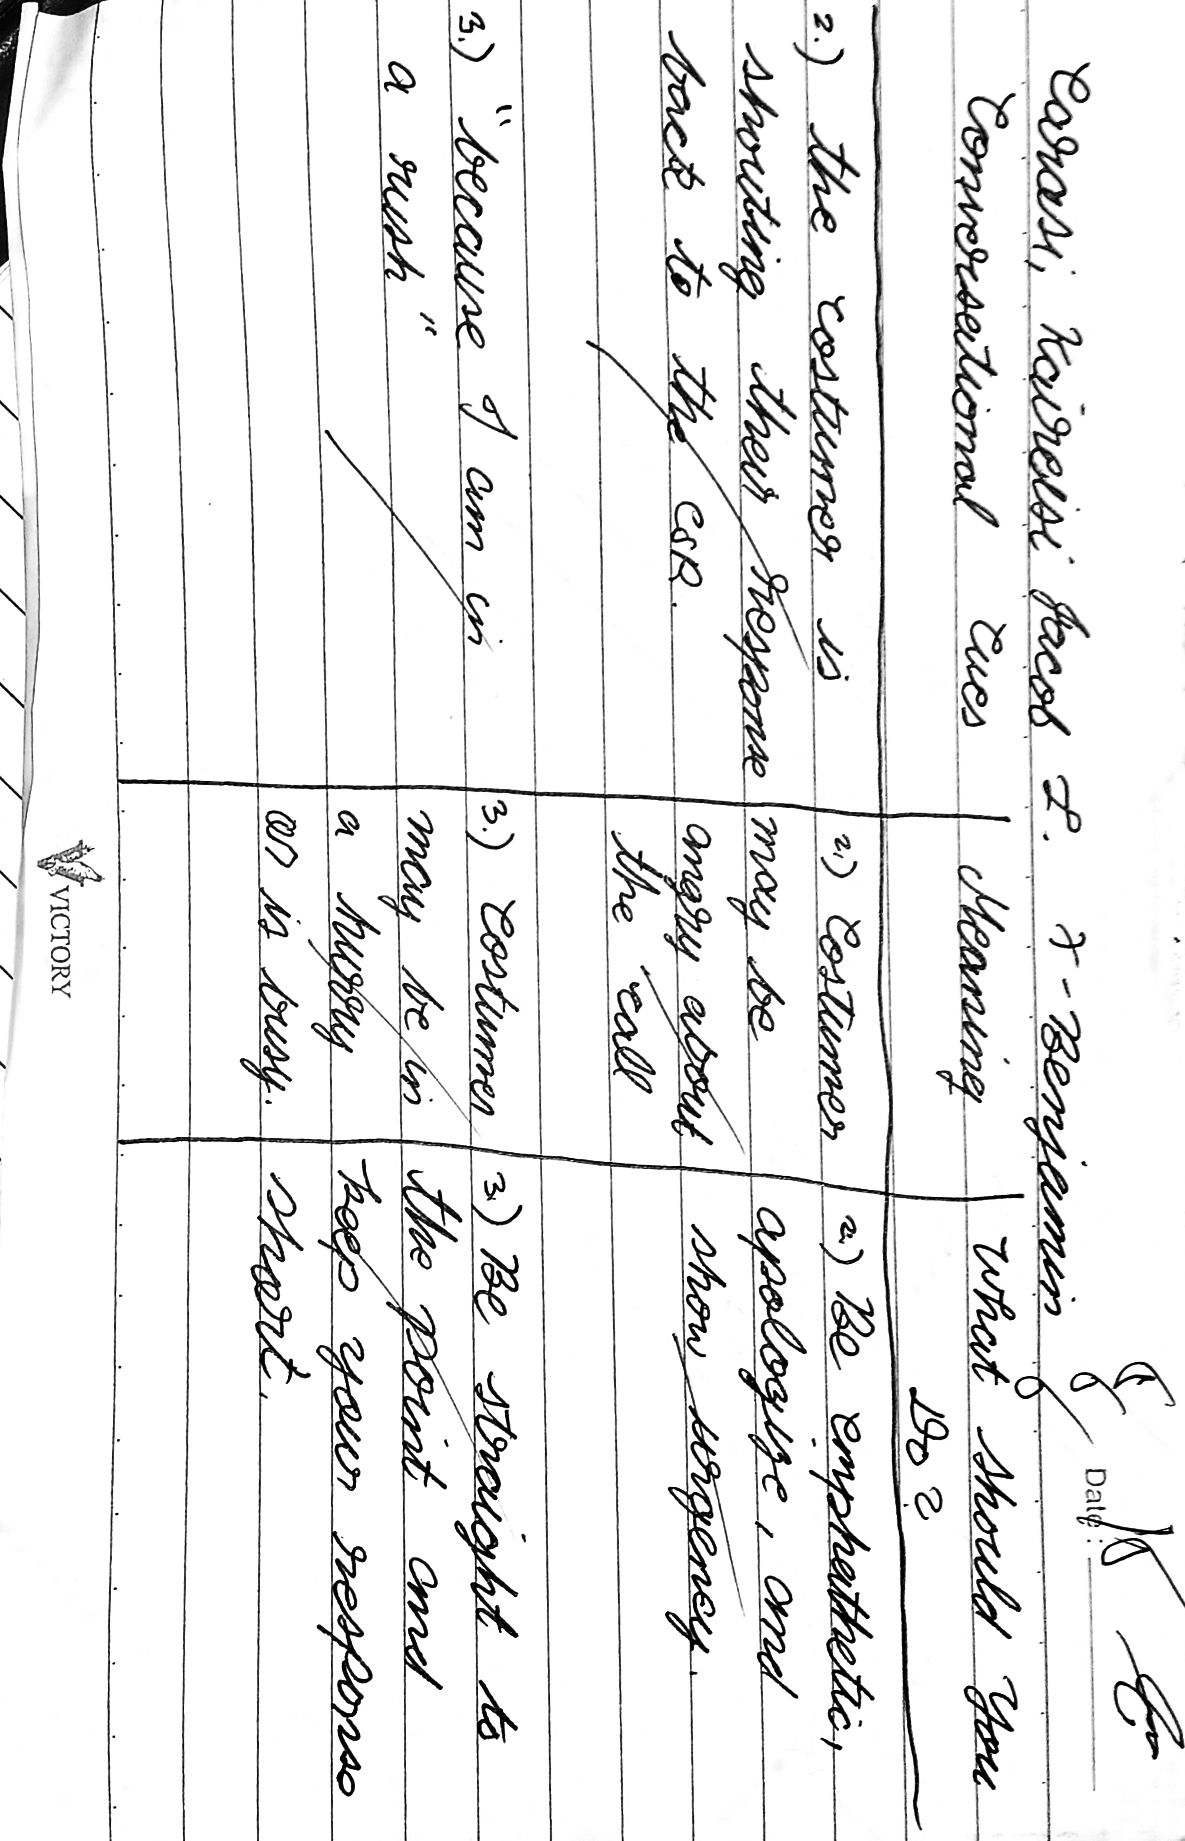 Date:
Carasi, Kairolsi Jacob L. X-Benjamin
Conversational Cues
Meaning
What should you
Do?
2.) the costumer is
shouting their response
back to the CSR.
2.) Costumer
may be
angry about
the call
2.) Be emphathetic,
apologize, and
show urgency.
3.) "because I am in
a rush"
3.) Costumer
may be in
a hurry
or is busy.
3.) Be straight to
the point and
keep your response
short.
VICTORY